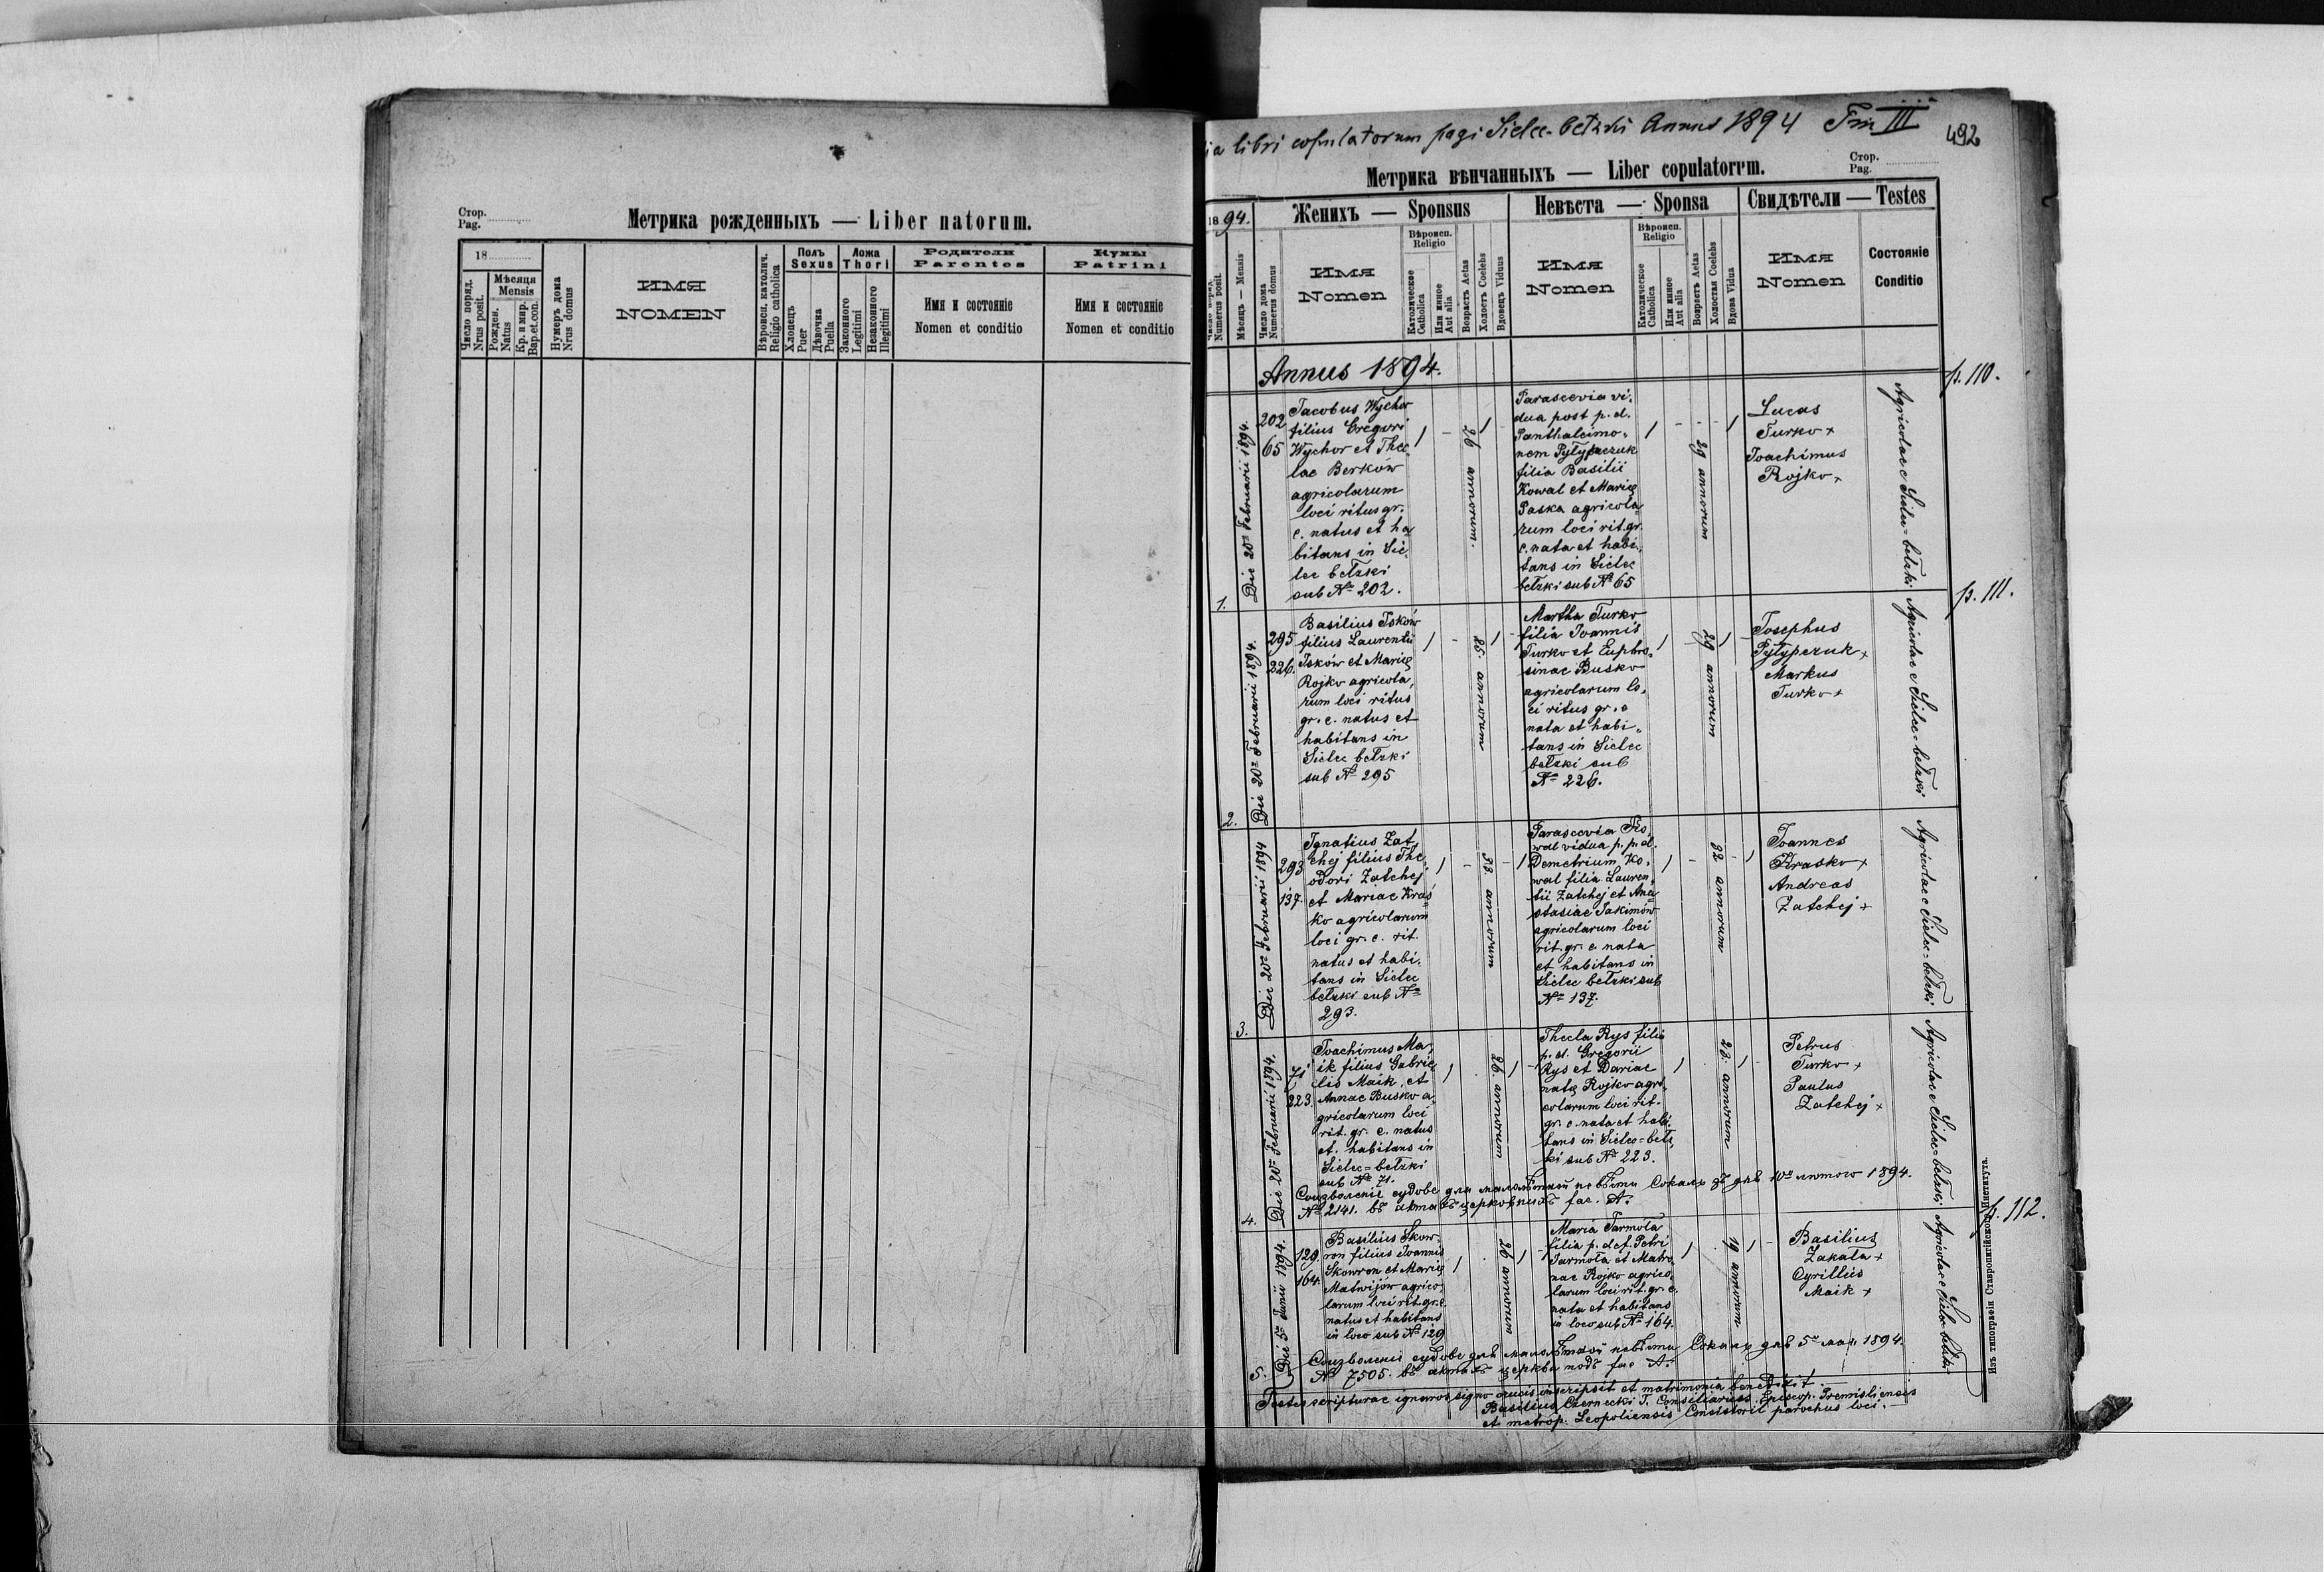 Стор.
Pag.
Метрика рожденныхъ — Liber natorum.
18
Число поряд.
Nrus posit.
Мѣсяця
Mensis
Рожден.
Natus
Кр. и мир.
Bap. et. con.
Нумеръ дома
Nrus domus
ИМЯ
NOMEN
Вѣроисп. католич.
Religio catholica
Полъ
Sexus
Хлопецъ
Puer
Дѣвочка
Puella
Ложа
Thori
Законного
Legitimi
Незаконного
Illegitimi
Родители
Parentes
Имя и состояніе
Nomen et conditio
Кумы
Patrini
Имя и состояніе
Nomen et conditio
libri copulatorum pagi Sielec-bełzki Annus 1894 III 492
Метрика вѣнчанныхъ — Liber copulatorum.
Стор.
Pag.
1894.
Numerus posit.
Мѣсяцъ — Mensis
Женихъ — Sponsus
Число дома
Numerus domus
ИМЯ
Nomen
Вѣроисп.
Religio
Католическое
Catholica
Или инное
Aut alia
Возрастъ Aetas
Холостъ Coelebs
Вдовецъ Viduus
Невѣста — Sponsa
ИМЯ
Nomen
Вѣроисп.
Religio
Католическое
Catholica
Или инное
Aut alia
Возрастъ Aetas
Холостая Coelebs
Вдова Vidua
Свидѣтели — Testes
ИМЯ
Nomen
Состояніе
Conditio
Annus 1894.
p. 110.
1.
Die 20ª Februarii 1894.
202
65
Jacobus Wychor
filius Gregori
Wychor et Thec
lae Berków
agricolarum
loci ritus gr.
c. natus et ha
bitans in Sie,
lec bełzki
sub № 202.
26 annorum.
Parascevia vi,
dua post p. d.
Panthaleimo,
nem Pyłypczuk
filia Basilii
Kowal et Marię
Paska agricola
rum loci rit. gr.
c. nata et habi,
tans in Sielec
bełzki sub № 65
29 annorum
Lucas
Turko +
Joachimus
Rojko +
Agricolae e Sielec-bełzki
p. 111.
2.
Die 20ª Februarii 1894.
295
226.
Basilius Iśków
filius Laurentii
Iśków et Marię
Rojko agricola,
rum loci ritus
gr. c. natus et
habitans in
Sielec bełzki
sub № 295
25. annorum
Martha Turko
filia Joannis
Turko et Euphro,
sinae Busko
agricolarum lo,
ci ritus gr. c
nata et habi,
tans in Sielec
bełzki sub
№ 226.
29 annorum
Josephus
Pyłypczuk +
Markus
Turko +
Agricolae e Sielec-bełzki
3.
Die 20ª Februarii 1894
293
137.
Ignatius Zat
chej filius The,
odori Zatchej
et Mariae Kras
ko agricolarum
loci gr. c. rit.
natus et habi,
tans in Sielec
bełzki sub №
293.
33. annorum
Parascevia Ko
wal vidua p. p. d.
Demetrium Ko,
wal filia Lauren,
tii Zatchej et Ana
stasiae Jakimów
agricolarum loci
rit. gr. c. nata
et habitans in
Sielec bełzki sub
№ 137.
32 annorum
Joannes
Krasko +
Andreas
Zatchej +
Agricolae e Sielec-bełzki
4.
Die 20ª Februarii 1894.
71
223.
Joachimus Ma,
ik filius Gabrie
lis Maik, et
Annae Busko a,
gricolarum loci
rit. gr. c. natus
et. habitans in
Sielec-bełzki
sub № 71.
26. annorum
Thecla Rys filia
p. d. Gregorii
Rys et Dariae
natę Rojko agri,
colarum loci rit.
gr. c. nata et habi,
tans in Sielec-bełz,
ki sub № 223.
23. annorum
Petrus
Turko +
Paulus
Zatchej +
Agricolae e Sielec-bełzki
Соизволеніе судове для малолѣтной невѣсты Сокаль дня 10 лютого 1894.
№ 2141. въ актахъ церковныхъ fac. A.
p. 112.
5.
Die 5ª Junii 1894.
129.
164.
Basilius Skow
ron filius Joannis
Skowron et Marię
Matwijów agrico,
larum loci rit. gr. c.
natus et habitans
in loco sub № 129
26 annorum
Maria Jarmoła
filia p. def. Petri
Jarmoła et Matro
nae Rojko agrico,
larum loci rit. gr. c.
nata et habitans
in loco sub № 164.
19 annorum
Basilius
Zakała +
Cyrillus
Maik +
Agricolae e Sielec-bełzki
Соизволеніе судове для малолѣтной невѣсты Сокаль дня 5 мая 1894.
№ 7505. въ актахъ церкви подъ fac A.
Testes scripturae ignaros signo crucis inscripsit et matrimonia benedixit
Basilius Czernecki T. Consiliarius Episcop. Premisliensis
et metrop. Leopoliensis Consistorii parochus loci.
Изъ типографіи Ставропигійского Института.